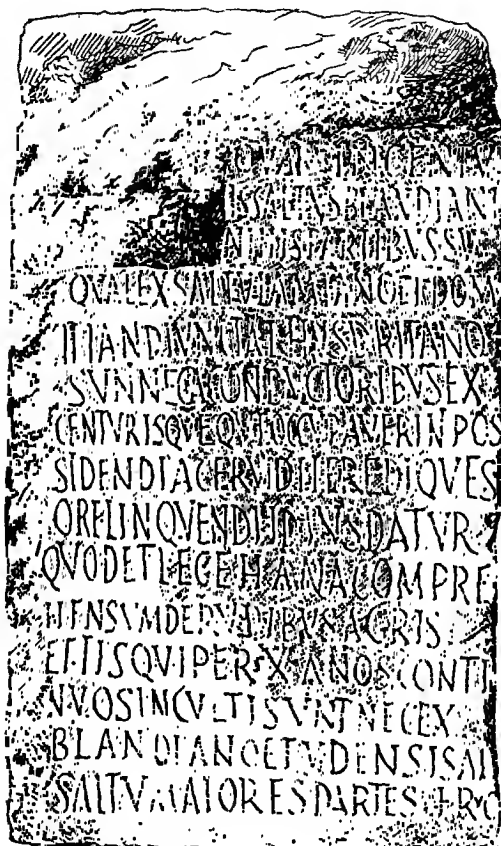 SALTVS BLANDIANI
PARTIBVS SV
QVALEXSALTVLAMIANOETDOM
ITIANOIVNCTAETHVSDRITANO
SVNNECACONDVCTORIBVSEX
CENTVRISQVEQVIOCCVPAVERINPOS
SIDENDIACFRVIDIHEREDIQVES
ORELINQVENDIIDIVSDATVR
QVODETLEGEHANACOMPRE
HENSVMDERVDIBVSAGRIS
ETIISQVIPERXANOSCONTI
NVOSINCVLTISVNTNECEX
BLANDIANOETVDENSISAL
SALTVMAIORESPARTESFRVC